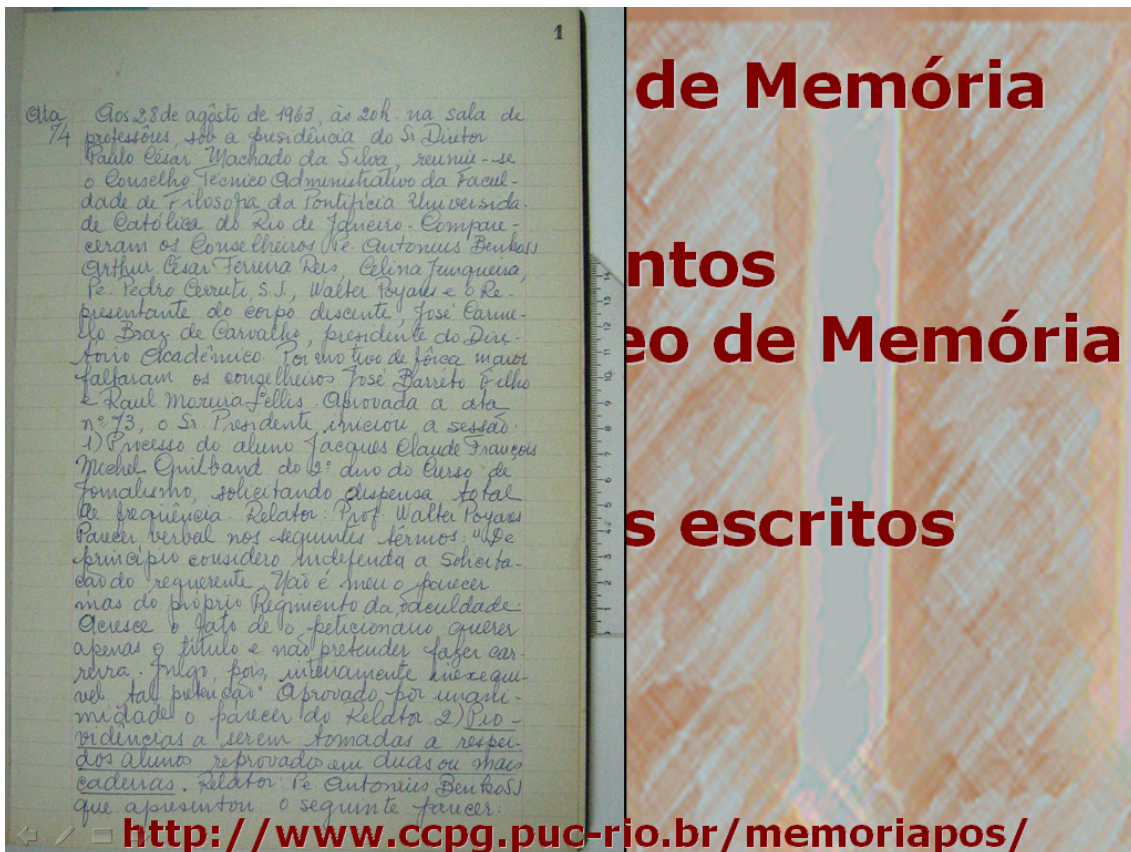 1
Ata Aos 28 de agôsto de 1963, às 20h. na sala de
74 professôres, sob a presidência do Sr. Diretor
Paulo César Machado da Silva, reuniu-se
o Conselho Técnico Administrativo da Facul-
dade de Filosofia da Pontifícia Universida-
de Católica do Rio de Janeiro. Compare-
ceram os Conselheiros Pe. Antonius Benkö SJ
Arthur César Ferreira Reis, Celina Junqueira,
Pe. Pedro Cerruti, S.J., Walter Poyares e o Re-
presentante do corpo discente, José Carme-
lo Braz de Carvalho, presidente do Dire-
tório Acadêmico. Por motivo de fôrça maior
faltaram os conselheiros José Barreto Filho
e Raul Moreira Lellis. Aprovada a ata
nº 73, o Sr. Presidente iniciou a sessão.
1) Processo do aluno Jacques Claude François
Michel Guilband do 2º ano do Curso de
Jornalismo, solicitando dispensa total
de freqüência. Relator: Prof. Walter Poyares
Parecer verbal nos seguintes têrmos: "De
princípio considero indefenda a solicita-
ção do requerente. Não é meu o parecer
mas do próprio Regimento da Faculdade.
Acresce o fato de o peticionario querer
apenas o título e não pretender fazer car-
reira. Julgo, pois, inteiramente inexequi-
vel tal pretenção". Aprovado por unani-
midade o parecer do Relator. 2) Pro-
vidências a serem tomadas a respei-
dos alunos reprovados em duas ou mais
cadeiras. Relator: Pe Antonius Benkö SJ
que apresentou o seguinte parecer:
1 2 3 4 5 6 7 8 9 10 11 12 13 14
de Memória
ntos
eo de Memória
s escritos
http://www.ccpg.puc-rio.br/memoriapos/